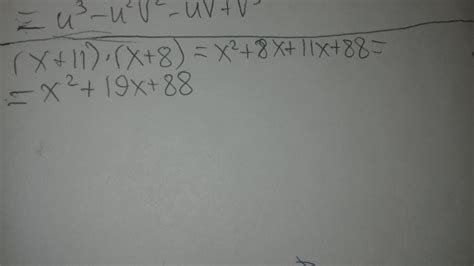 = u³ - u²v² - uv + v³
(x+11)·(x+8) = x²+8x+11x+88=
= x²+19x+88